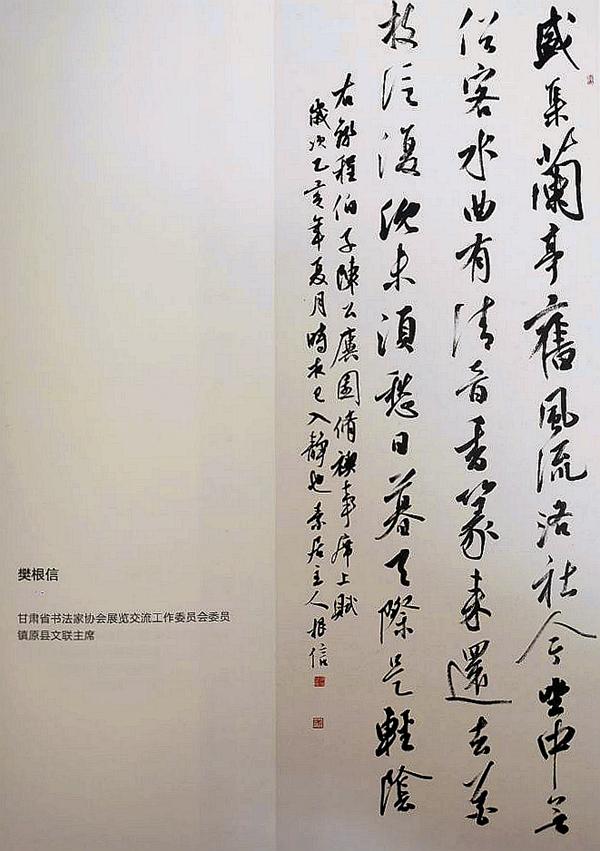 盛集蘭亭舊風流洛社今坐中無
俗客水曲有清音香篆來還去花
枝泛復沈未須愁日暮天際是輕陰
右錄程伯子陳公廙園脩禊事席上賦
歲次乙亥年夏月時夜已入靜也素居主人根信
樊根信
甘肃省书法家协会展览交流工作委员会委员
镇原县文联主席